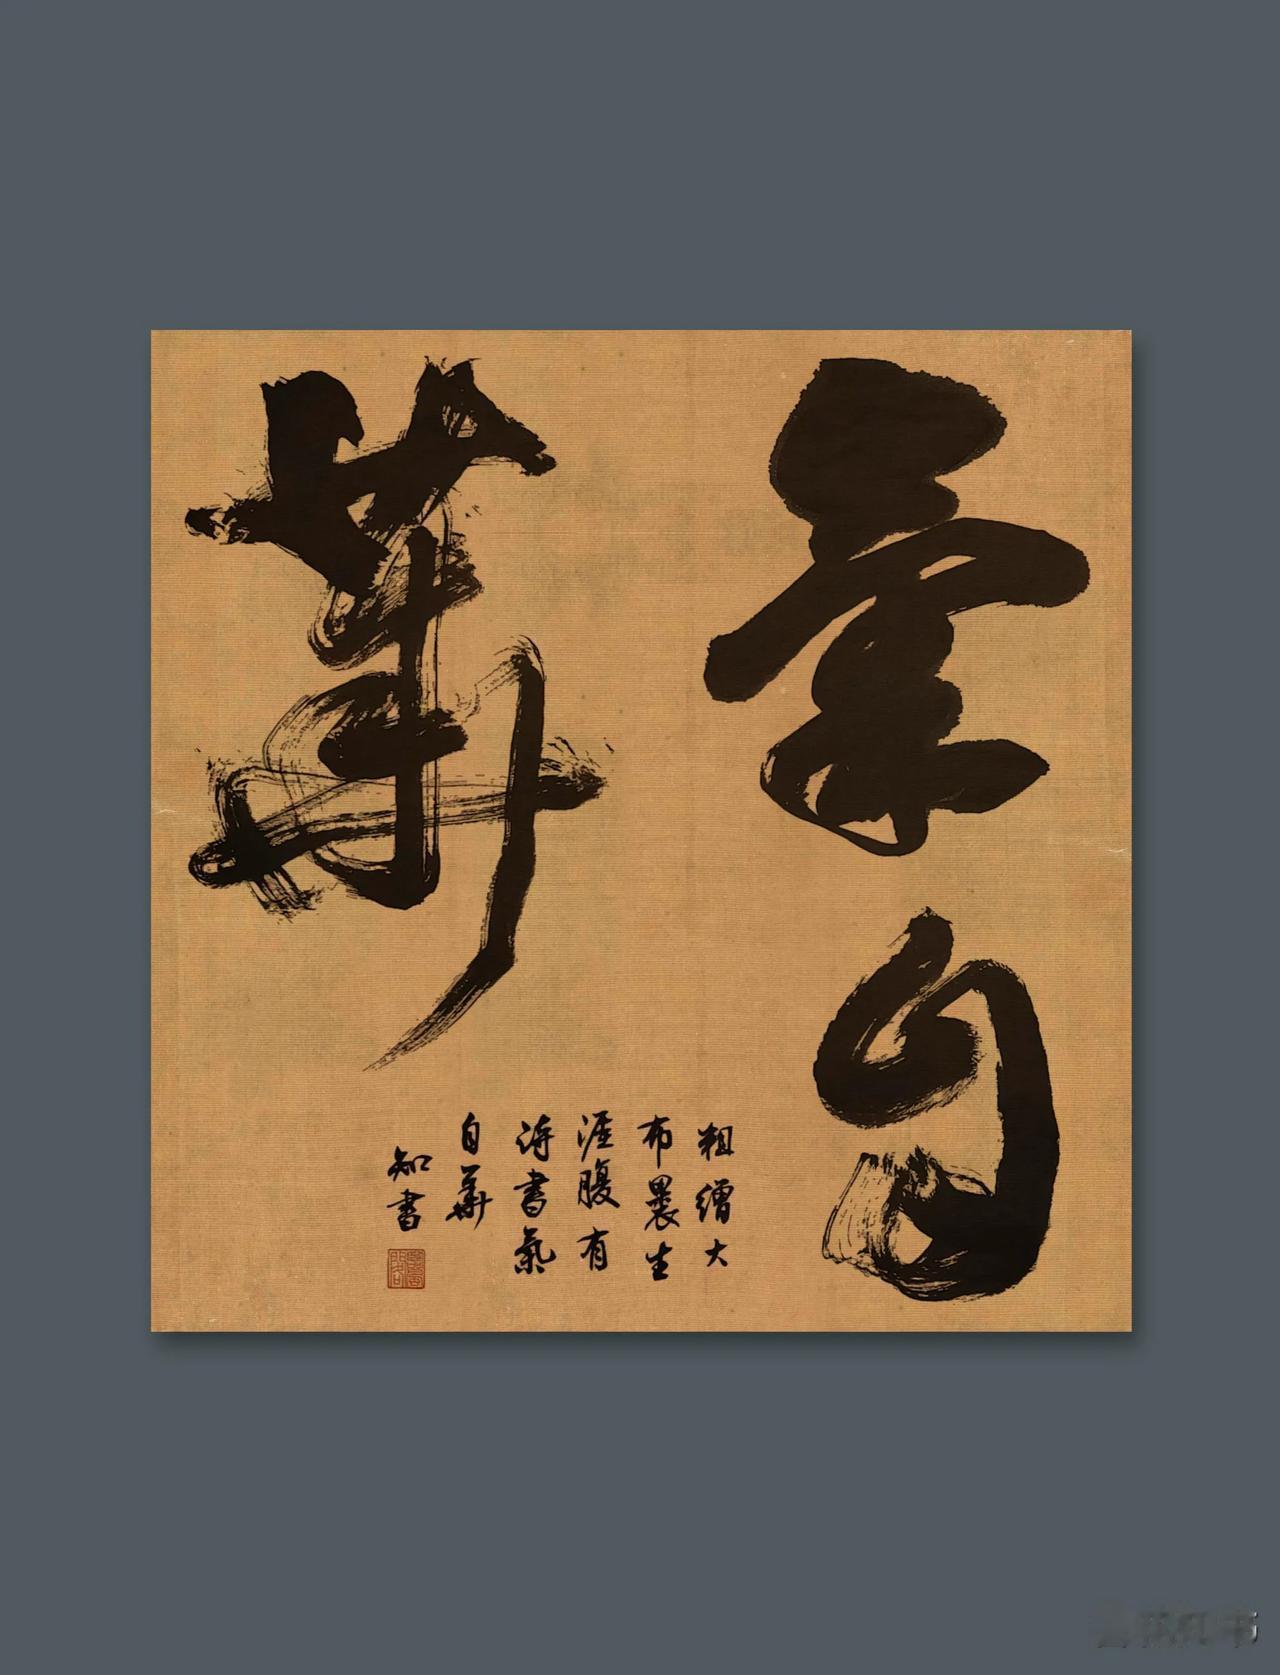 氣自
華
粗繒大
布裹生
涯腹有
詩書氣
自華
知書